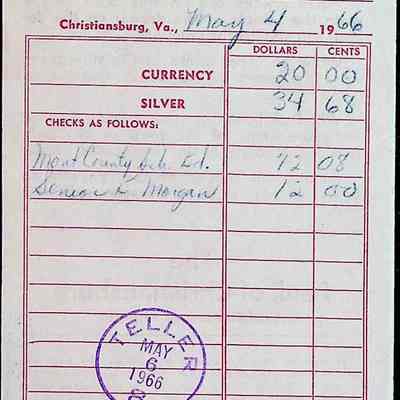 Christiansburg, Va., May 4 1966
DOLLARS CENTS
CURRENCY 20 00
SILVER 34 68
CHECKS AS FOLLOWS:
Mont County Sch. Bd. 72 08
K. Morgan 12 00
TELLER
MAY
6
1966